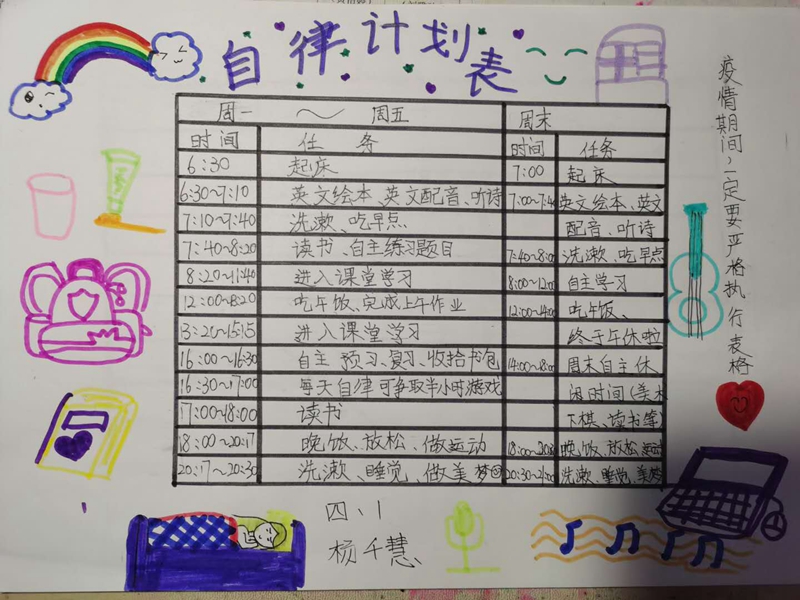 自律计划表
周一 ～ 周五 周末
时间 任务 时间 任务
6:30 起床 7:00 起床
6:30~7:10 英文绘本、英文配音、听诗 7:00~7:40 英文绘本、英文
7:10~7:40 洗漱、吃早点 配音、听诗
7:40~8:20 读书、自主练习题目 7:40~8:00 洗漱、吃早点
8:20~11:40 进入课堂学习 8:00~12:00 自主学习
12:00~13:20 吃午饭、完成上午作业 12:00~14:00 吃午饭、
13:20~15:15 进入课堂学习 终于午休啦
16:00~16:30 自主预习、复习、收拾书包 14:00~18:00 周末自主休
16:30~17:00 每天自律可争取半小时游戏 闲时间(美术
17:00~18:00 读书 下棋、读书等)
18:00~20:17 晚饭、放松、做运动 晚饭、放松、运动
20:17~20:30 洗漱、睡觉、做美梦 20:30~21:00 洗漱、睡觉、美梦
疫情期间，一定要严格执行表格
四、1
杨千慧